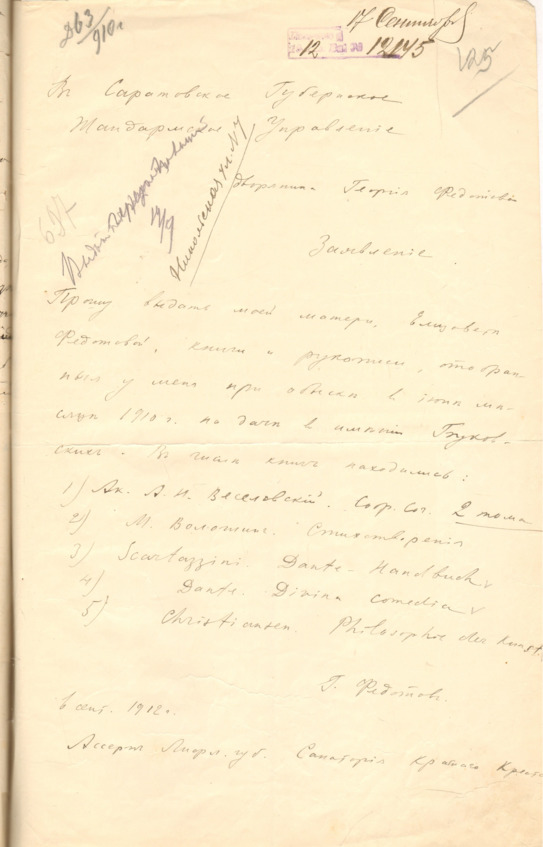 Д63/910г
17 Сент
12 12145
125
Въ Саратовское Губернское
Жандармское Управленіе
657
19/9
Никольская ул. №7
Дворянина Георгія Федотова
Заявленіе.
Прошу выдать моей матери, Елизавете
Федотовой, книги и рукописи, отобран-
ныя у меня при обыскѣ в іюнѣ мѣ-
сяцѣ 1910 г. на дачѣ в имѣніи
скихъ. Въ числѣ книгъ находились:
1) Ак. А. Н. Веселовскій. Собр. Соч. 2 тома
2) М. Волошинъ. Стихотворенія
3) Scartazzini. Dante-Handbuch
4) Dante. Divina Comedia
5) Christiansen. Philosophie der Kunst.
Г. Федотовъ.
6 сент. 1912 г.
Ассернъ Лифл. губ. Санаторія Краснаго Креста